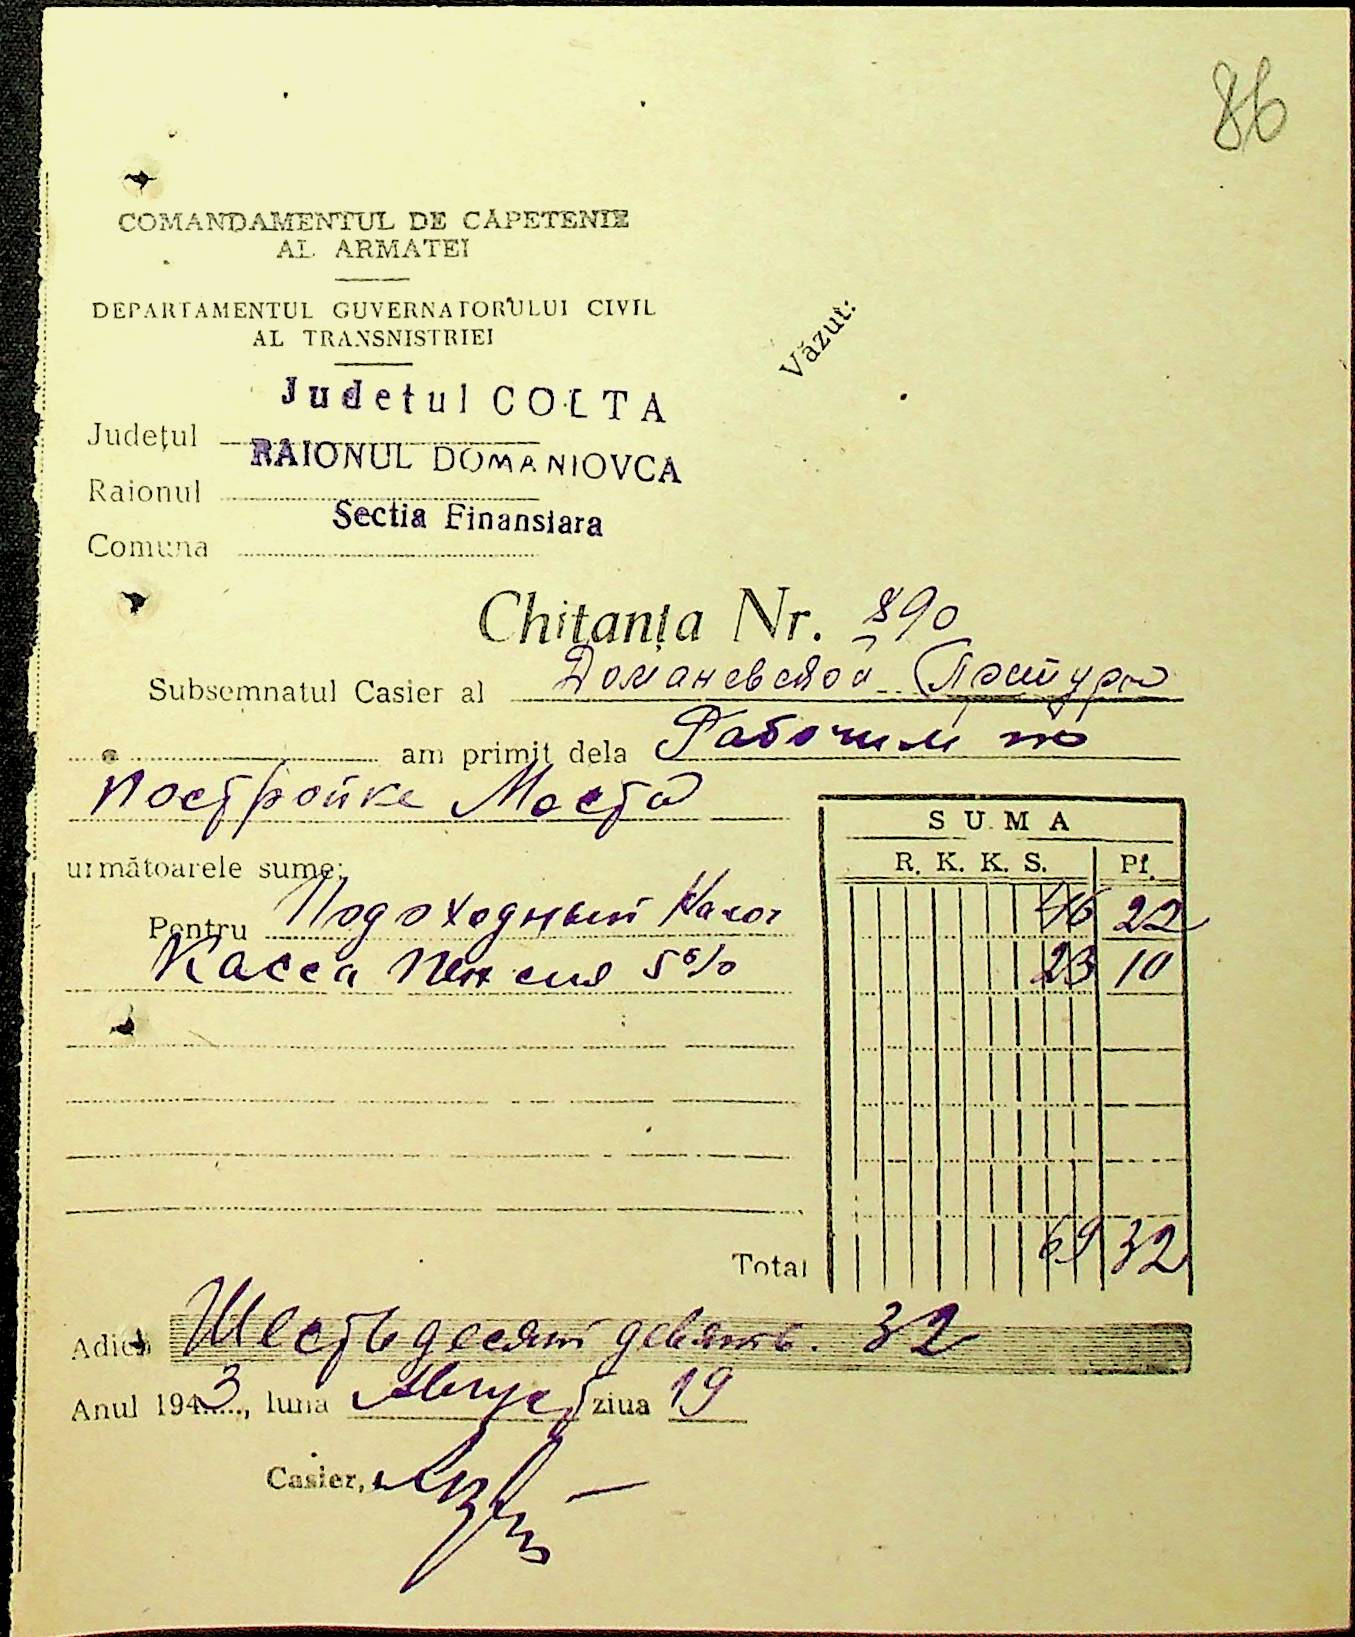 86
COMANDAMENTUL DE CAPETENIE
AL ARMATEI
DEPARTAMENTUL GUVERNATORULUI CIVIL
AL TRANSNISTRIEI
Văzut:
Judetul COLTA
Județul
RAIONUL DOMANIOVCA
Raionul
Sectia Finansiara
Comuna
Chitanța Nr. 890
Subsemnatul Casier al Доманевской Претуры
am primit dela Рабочим по
постройке Моста
SUMA
R. K. K. S. Pf.
următoarele sume:
Pentru Подоходный Налог 46 22
Касса пенсия 5% 23 10
Total 69 32
Adică Шестьдесят девять. 32
Anul 1943, luna Август ziua 19
Casier,